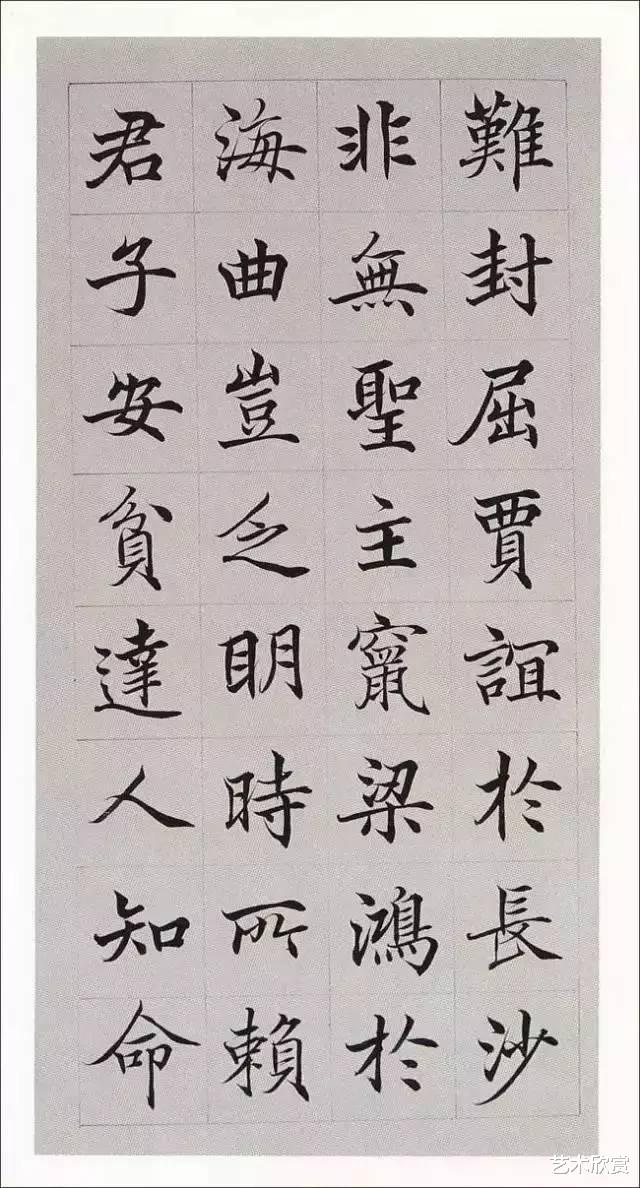 難封屈賈誼於長沙
非無聖主竄梁鴻於
海曲豈乏明時所賴
君子安貧達人知命
艺术欣赏